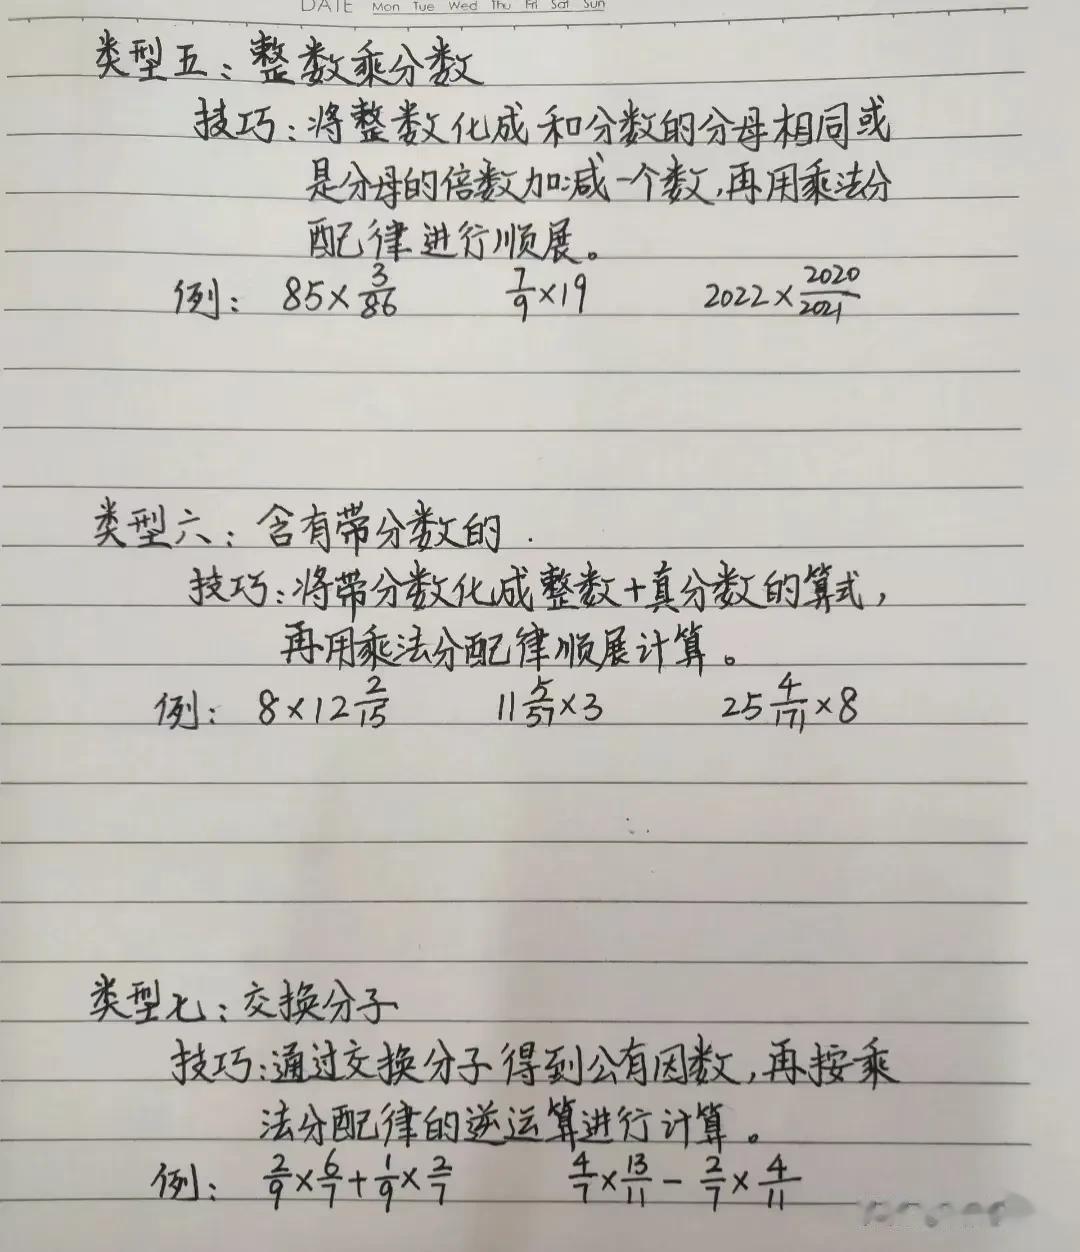 DATE Mon Tue Wed Thu Fri Sat Sun
类型五：整数乘分数
技巧：将整数化成和分数的分母相同或
是分母的倍数加减一个数，再用乘法分
配律进行顺展。
例：85×3/86 7/9×19 2022×2020/2021
类型六：含有带分数的.
技巧：将带分数化成整数+真分数的算式，
再用乘法分配律顺展计算。
例：8×12 2/15 11 5/57×3 25 4/171×8
类型七：交换分子
技巧：通过交换分子得到公有因数，再按乘
法分配律的逆运算进行计算。
例：2/9×6/7+1/9×2/7 4/7×13/11-2/7×4/11